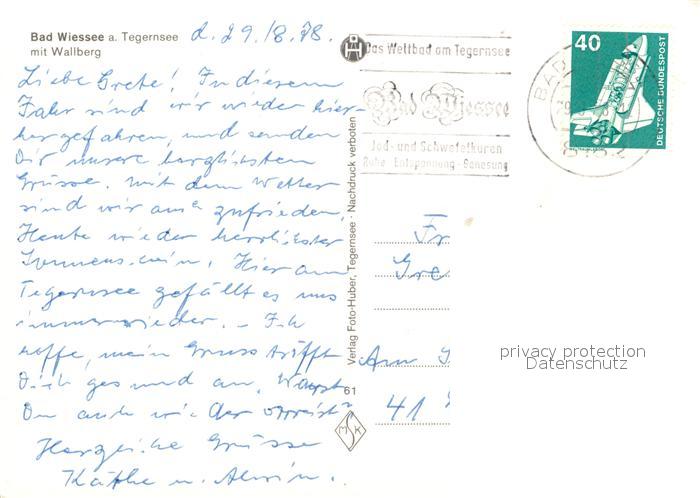 Bad Wiessee a. Tegernsee
mit Wallberg
d. 29./8.78.
Liebe Grete! In diesem
Jahr sind wir wieder hier-
her gefahren, und senden
Dir unsere herzlichsten
Grüsse. Mit dem Wetter
sind wir auch zufrieden,
Heute wieder herrlichster
Sonnenschein, Hier am
Tegernsee gefällt es uns
immer wieder. – Ich
hoffe, mein Gruss trifft
Dich gesund an, Warst
Du auch wieder verreist?
Herzliche Grüsse
Käthe u. Alwin.
Verlag Foto-Huber, Tegernsee · Nachdruck verboten
61
MSK
Das Weltbad am Tegernsee
Bad Wiessee
Jod- und Schwefelkuren
Ruhe · Entspannung · Genesung
BAD
40
DEUTSCHE BUNDESPOST
Fr
Gre
Am
41
privacy protection
Datenschutz